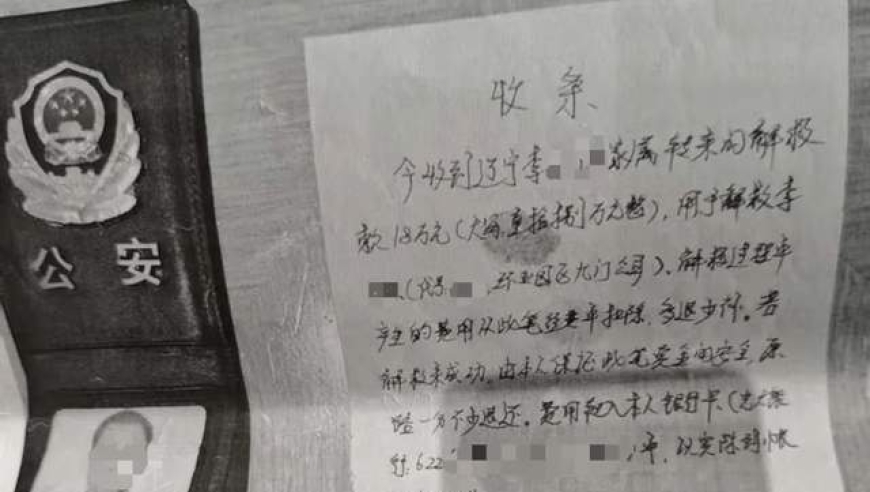 公安
收条
今收到辽宁李 家属转来的解救
款18万元(大写壹拾捌万元整),用于解救李
(代号 ,东业园区九门公司)。解救过程中
产生的费用从此笔经费中扣除,多退少补。若
解救未成功,由本人保证此笔资金的安全,原
路一分不少退还。费用打入本人银行卡(光大银
行:622 )中,现实际到帐